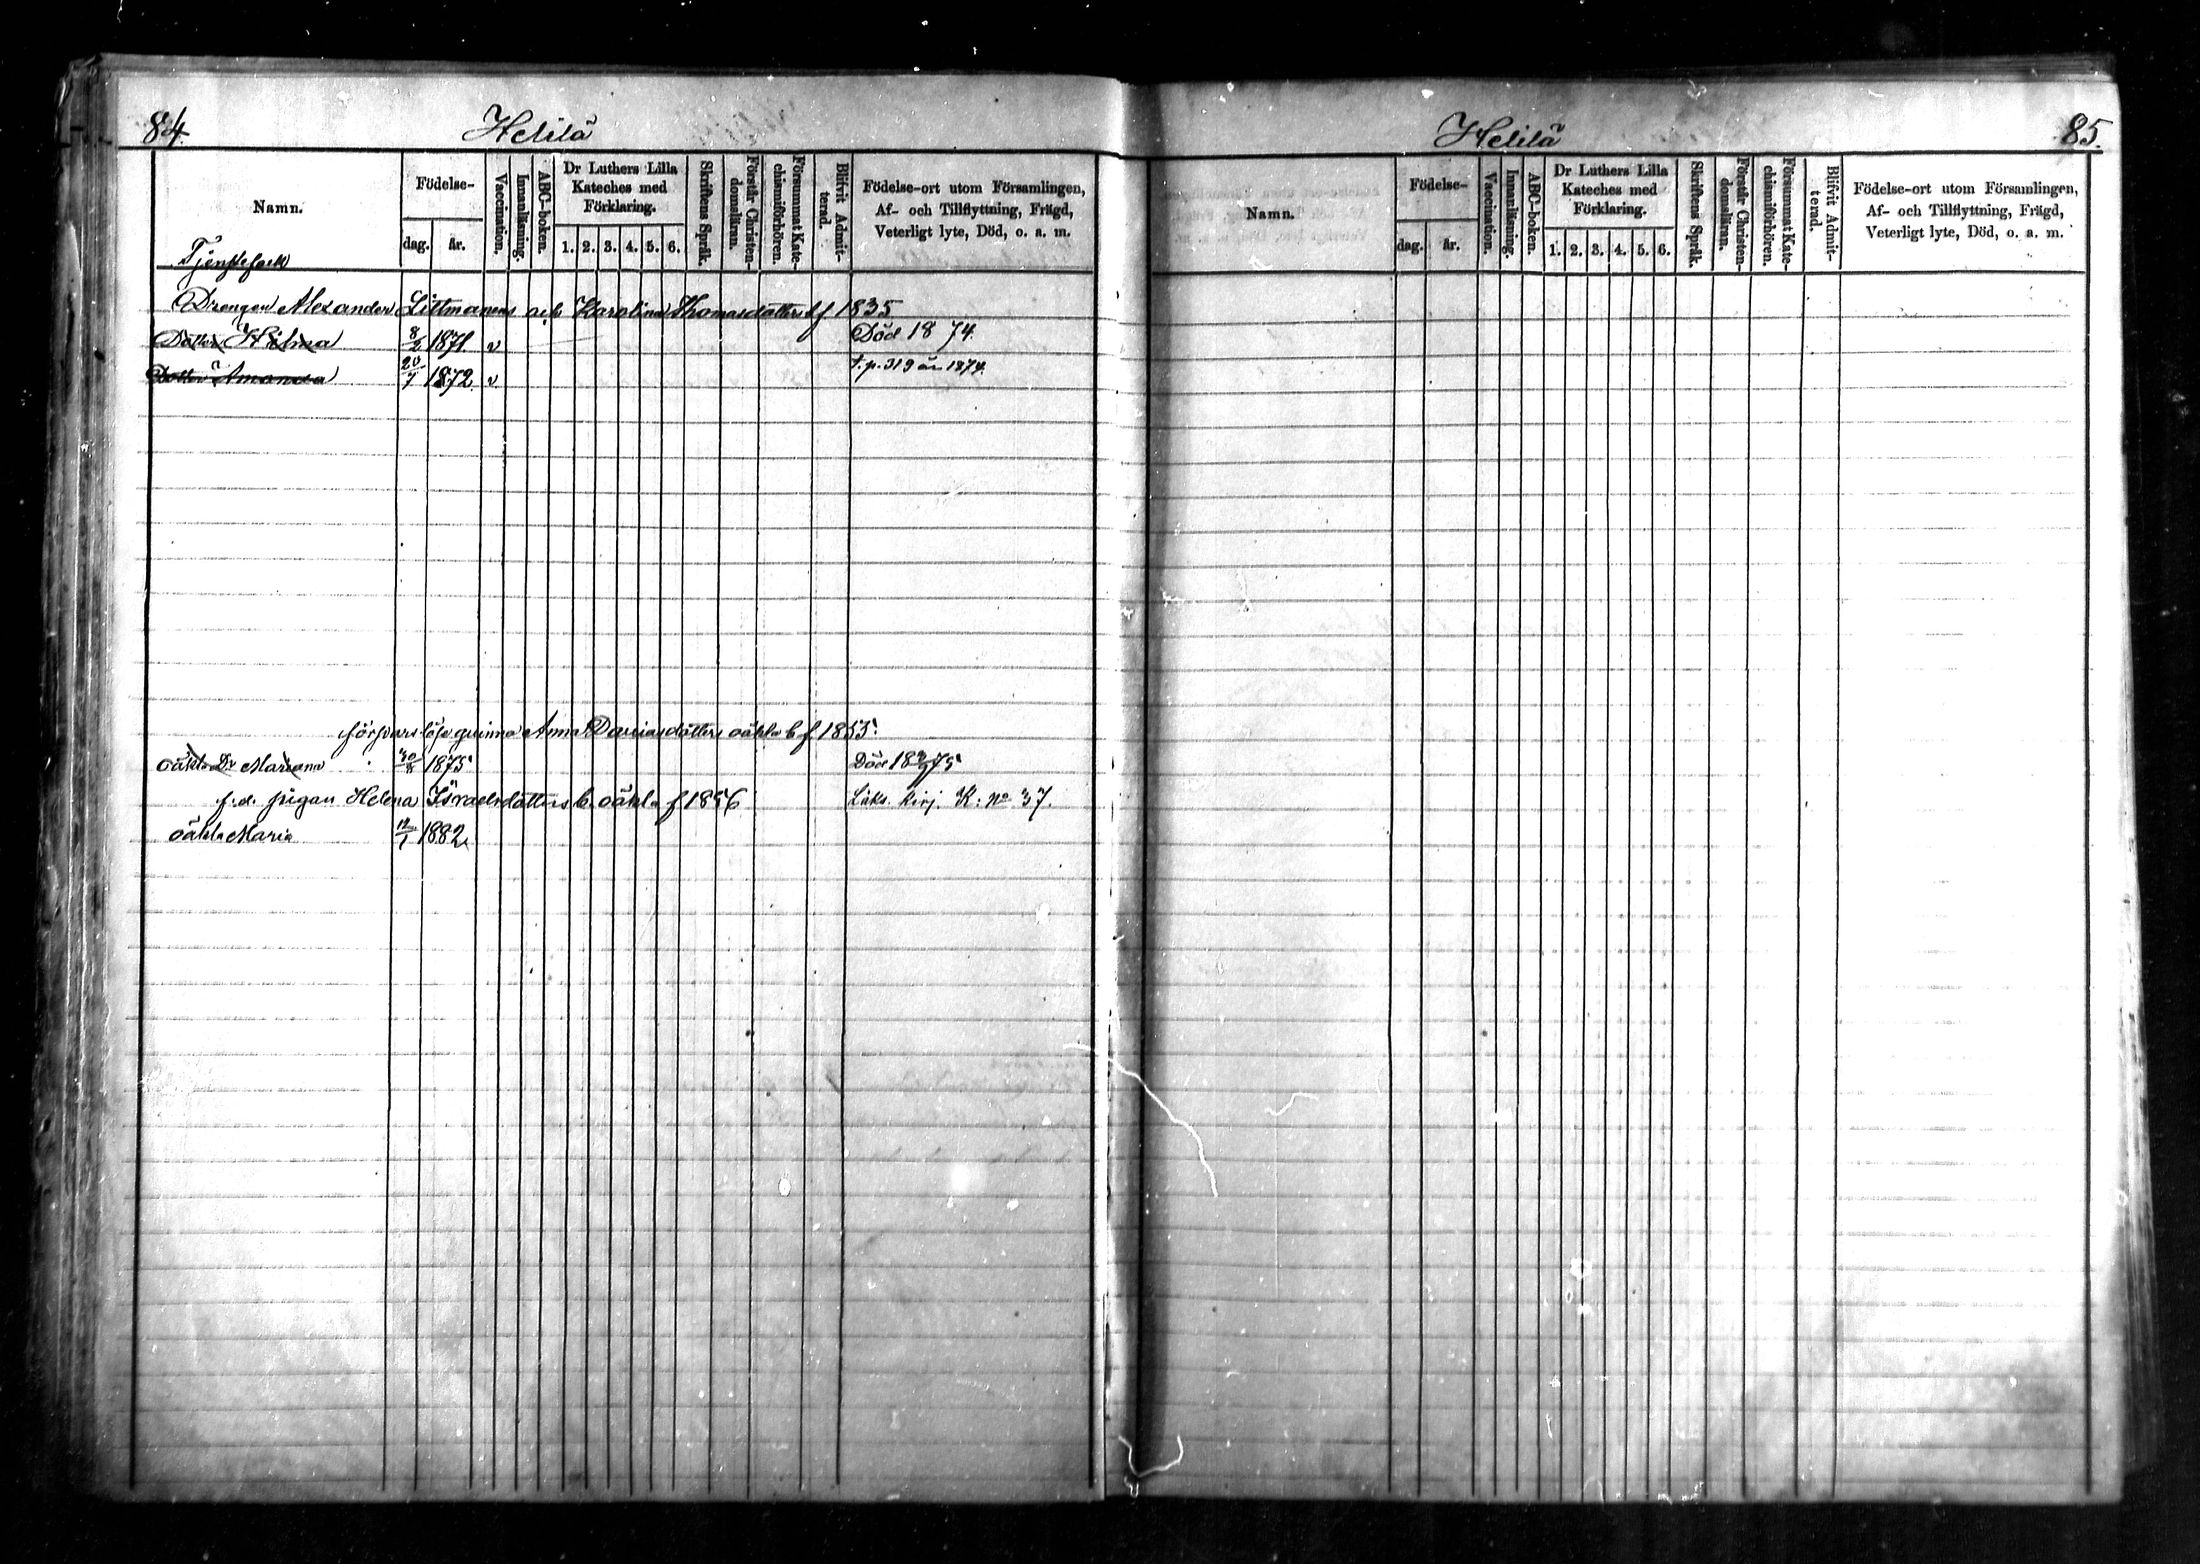 84.
Helilä
Namn.
Födelse-
dag.
år.
Vaccination.
Innanläsning.
ABC-boken.
Dr Luthers Lilla
Kateches med
Förklaring.
1. 2. 3. 4. 5. 6.
Skriftens Språk.
Förstår Christen-
domsläran.
Försummat Kate-
chismiförhören.
Blifvit Admit-
terad.
Födelse-ort utom Församlingen,
Af- och Tillflyttning, Frägd,
Veterligt lyte, Död, o. a. m.
Tjenstefolk
Drengen Alexander Littmanens och Karolina Thomasdotters f 1835
Dotter Hilma 8/2 1871. v Död 18 74.
Dotter Amanda 20/7 1872 v t. p. 319 år 1874.
försvarslösa qvinnan Anna Dariasdotters oäkta b f 1855.
oäkta Dr Mariana 30/8 1875 Död 18 75
f.d. pigan Helena Israelsdotters b. oäkta f 1856 Laks. kirj. K: No 37.
oäkta Maria 12/1 1882
Helilä
85.
Namn.
Födelse-
dag.
år.
Vaccination.
Innanläsning.
ABC-boken.
Dr Luthers Lilla
Kateches med
Förklaring.
1. 2. 3. 4. 5. 6.
Skriftens Språk.
Förstår Christen-
domsläran.
Försummat Kate-
chismiförhören.
Blifvit Admit-
terad.
Födelse-ort utom Församlingen,
Af- och Tillflyttning, Frägd,
Veterligt lyte, Död, o. a. m.